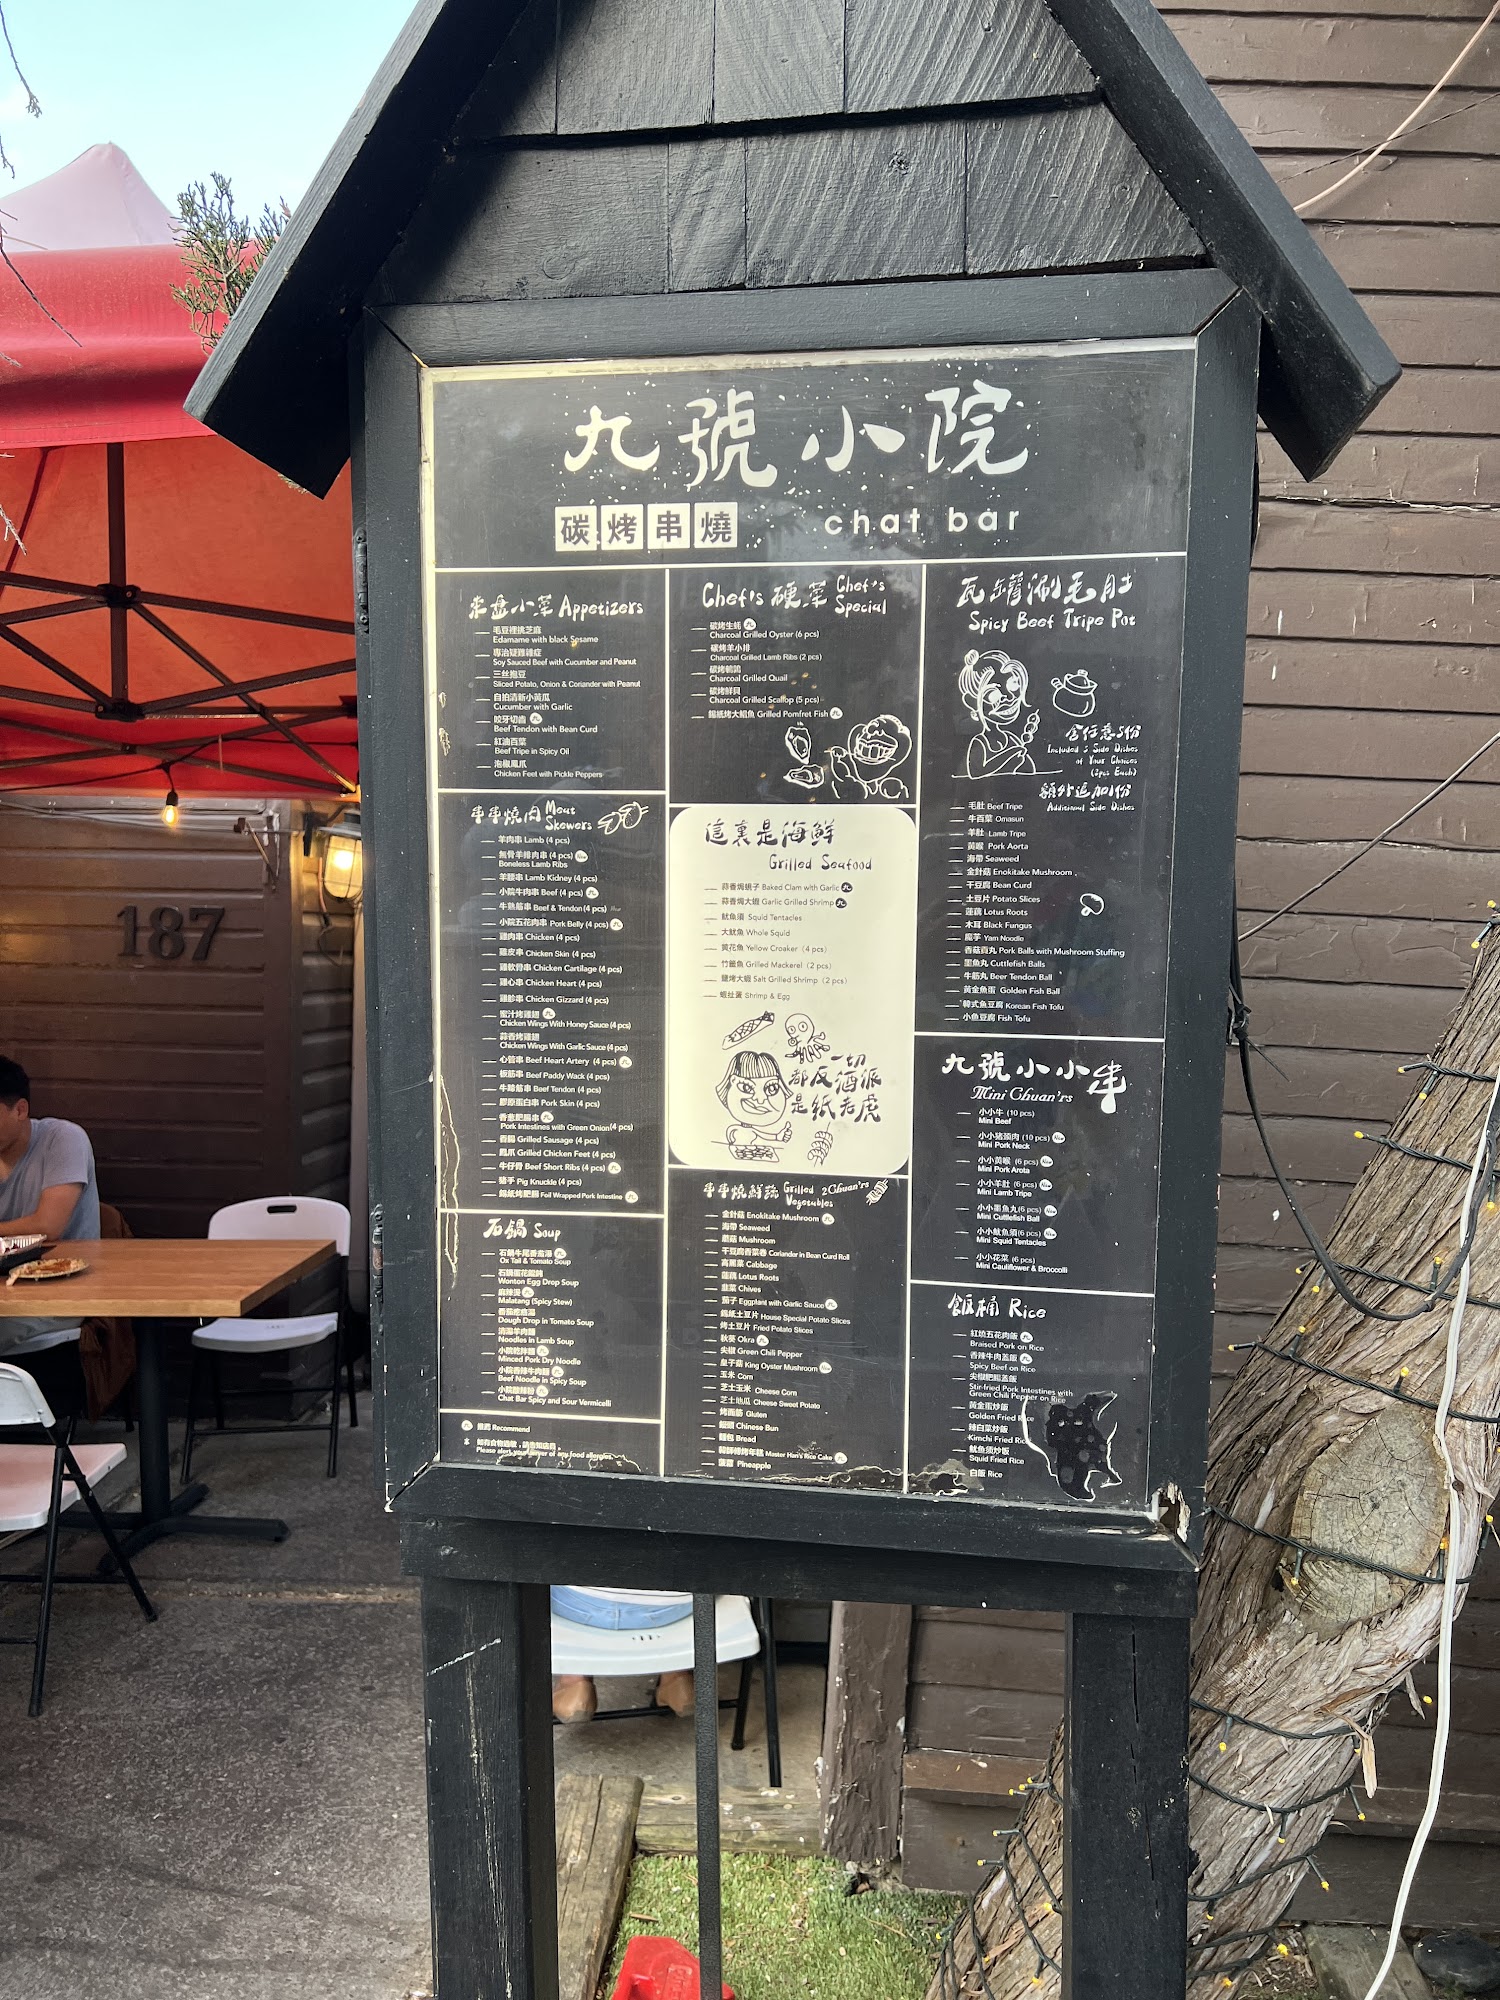 九號小院
碳烤串燒
chat bar
187
來盘小菜 Appetizers
毛豆裡挑芝麻
Edamame with black Sesame
專治疑難雜症
Soy Sauced Beef with Cucumber and Peanut
三丝
Sliced Potato, Onion & Coriander with Peanut
自拍清新小黃瓜
Cucumber with Garlic
咬牙切齒 九
Beef Tendon with Bean Curd
紅油百葉
Beef Tripe in Spicy Oil
泡椒鳳爪
Chicken Feet with Pickle Peppers
串串燒肉 Meat Skewers
羊肉串 Lamb (4 pcs)
無骨羊排肉串 (4 pcs) New
Boneless Lamb Ribs
羊腰串 Lamb Kidney (4 pcs)
小院牛肉串 Beef (4 pcs) 九
牛熟筋串 Beef & Tendon (4 pcs) New
小院五花肉串 Pork Belly (4 pcs) 九
雞肉串 Chicken (4 pcs)
雞皮串 Chicken Skin (4 pcs)
雞軟骨串 Chicken Cartilage (4 pcs)
雞心串 Chicken Heart (4 pcs)
雞胗串 Chicken Gizzard (4 pcs)
蜜汁烤雞翅 九
Chicken Wings With Honey Sauce (4 pcs)
蒜香烤雞翅
Chicken Wings With Garlic Sauce (4 pcs)
心管串 Beef Heart Artery (4 pcs) 九
板筋串 Beef Paddy Wack (4 pcs)
牛蹄筋串 Beef Tendon (4 pcs)
膠原蛋白串 Pork Skin (4 pcs)
香蔥肥腸串 九
Pork Intestines with Green Onion (4 pcs)
香腸 Grilled Sausage (4 pcs)
鳳爪 Grilled Chicken Feet (4 pcs)
牛仔骨 Beef Short Ribs (4 pcs) 九
豬手 Pig Knuckle (4 pcs)
錫紙烤肥腸 Foil Wrapped Pork Intestine 九
石鍋 Soup
石鍋牛尾番茄湯 九
Ox Tail & Tomato Soup
石鍋蛋花餛飩
Wonton Egg Drop Soup
麻辣燙 九
Malatang (Spicy Stew)
番茄疙瘩湯
Dough Drop in Tomato Soup
清湯羊肉麵
Noodles in Lamb Soup
小院乾拌麵 九
Minced Pork Dry Noodle
小院香辣牛肉麵 九
Beef Noodle in Spicy Soup
小院酸辣粉 九
Chat Bar Spicy and Sour Vermicelli
九 推薦 Recommend
如有食物過敏，請告知店員。
Please alert your server of any food allergies.
Chef's 硬菜 Chef's Special
碳烤生蚝 九
Charcoal Grilled Oyster (6 pcs)
碳烤羊小排
Charcoal Grilled Lamb Ribs (2 pcs)
碳烤鵪鶉
Charcoal Grilled Quail
碳烤鮮貝
Charcoal Grilled Scallop (5 pcs)
錫紙烤大鯧魚 Grilled Pomfret Fish 九
這裏是海鮮
Grilled Seafood
蒜香焗蜆子 Baked Clam with Garlic 九
蒜香焗大蝦 Garlic Grilled Shrimp 九
魷魚須 Squid Tentacles
大魷魚 Whole Squid
黃花魚 Yellow Croaker (4 pcs)
竹籤魚 Grilled Mackerel (2 pcs)
鹽烤大蝦 Salt Grilled Shrimp (2 pcs)
蝦扯蛋 Shrimp & Egg
一切
都反酒派
是紙老虎
串串燒鮮蔬 Grilled Vegetables 2 Chuan'rs
金針菇 Enokitake Mushroom 九
海帶 Seaweed
蘑菇 Mushroom
干豆腐香菜卷 Coriander in Bean Curd Roll
高麗菜 Cabbage
蓮藕 Lotus Roots
韭菜 Chives
茄子 Eggplant with Garlic Sauce 九
錫紙土豆片 House Special Potato Slices
烤土豆片 Fried Potato Slices
秋葵 Okra 九
尖椒 Green Chili Pepper
皇子菇 King Oyster Mushroom New
玉米 Corn
芝士玉米 Cheese Corn
芝士地瓜 Cheese Sweet Potato
烤面筋 Gluten
饅頭 Chinese Bun
麵包 Bread
韓師傅烤年糕 Master Han's Rice Cake 九
菠蘿 Pineapple
瓦罐涮毛肚
Spicy Beef Tripe Pot
含任意5份
Included 5 Side Dishes
of Your Choices
(2pcs Each)
額外追加1份
Additional Side Dishes
毛肚 Beef Tripe
牛百葉 Omasun
羊肚 Lamb Tripe
黃喉 Pork Aorta
海帶 Seaweed
金針菇 Enokitake Mushroom
干豆腐 Bean Curd
土豆片 Potato Slices
蓮藕 Lotus Roots
木耳 Black Fungus
魔芋 Yam Noodle
香菇百丸 Pork Balls with Mushroom Stuffing
墨魚丸 Cuttlefish Balls
牛筋丸 Beer Tendon Ball
黃金魚蛋 Golden Fish Ball
韓式魚豆腐 Korean Fish Tofu
小魚豆腐 Fish Tofu
九號小小串
Mini Chuan'rs
小小牛 (10 pcs)
Mini Beef
小小豬頸肉 (10 pcs) New
Mini Pork Neck
小小黃喉 (6 pcs) New
Mini Pork Arota
小小羊肚 (6 pcs) New
Mini Lamb Tripe
小小墨魚丸 (6 pcs) New
Mini Cuttlefish Ball
小小魷魚須 (6 pcs) New
Mini Squid Tentacles
小小花菜 (6 pcs)
Mini Cauliflower & Broccolli
飯桶 Rice
紅燒五花肉飯 九
Braised Pork on Rice
香辣牛肉蓋飯 九
Spicy Beef on Rice
尖椒肥腸蓋飯
Stir-fried Pork Intestines with
Green Chili Pepper on Rice
黃金蛋炒飯
Golden Fried Rice
辣白菜炒飯
Kimchi Fried Rice
魷魚须炒飯
Squid Fried Rice
白飯 Rice